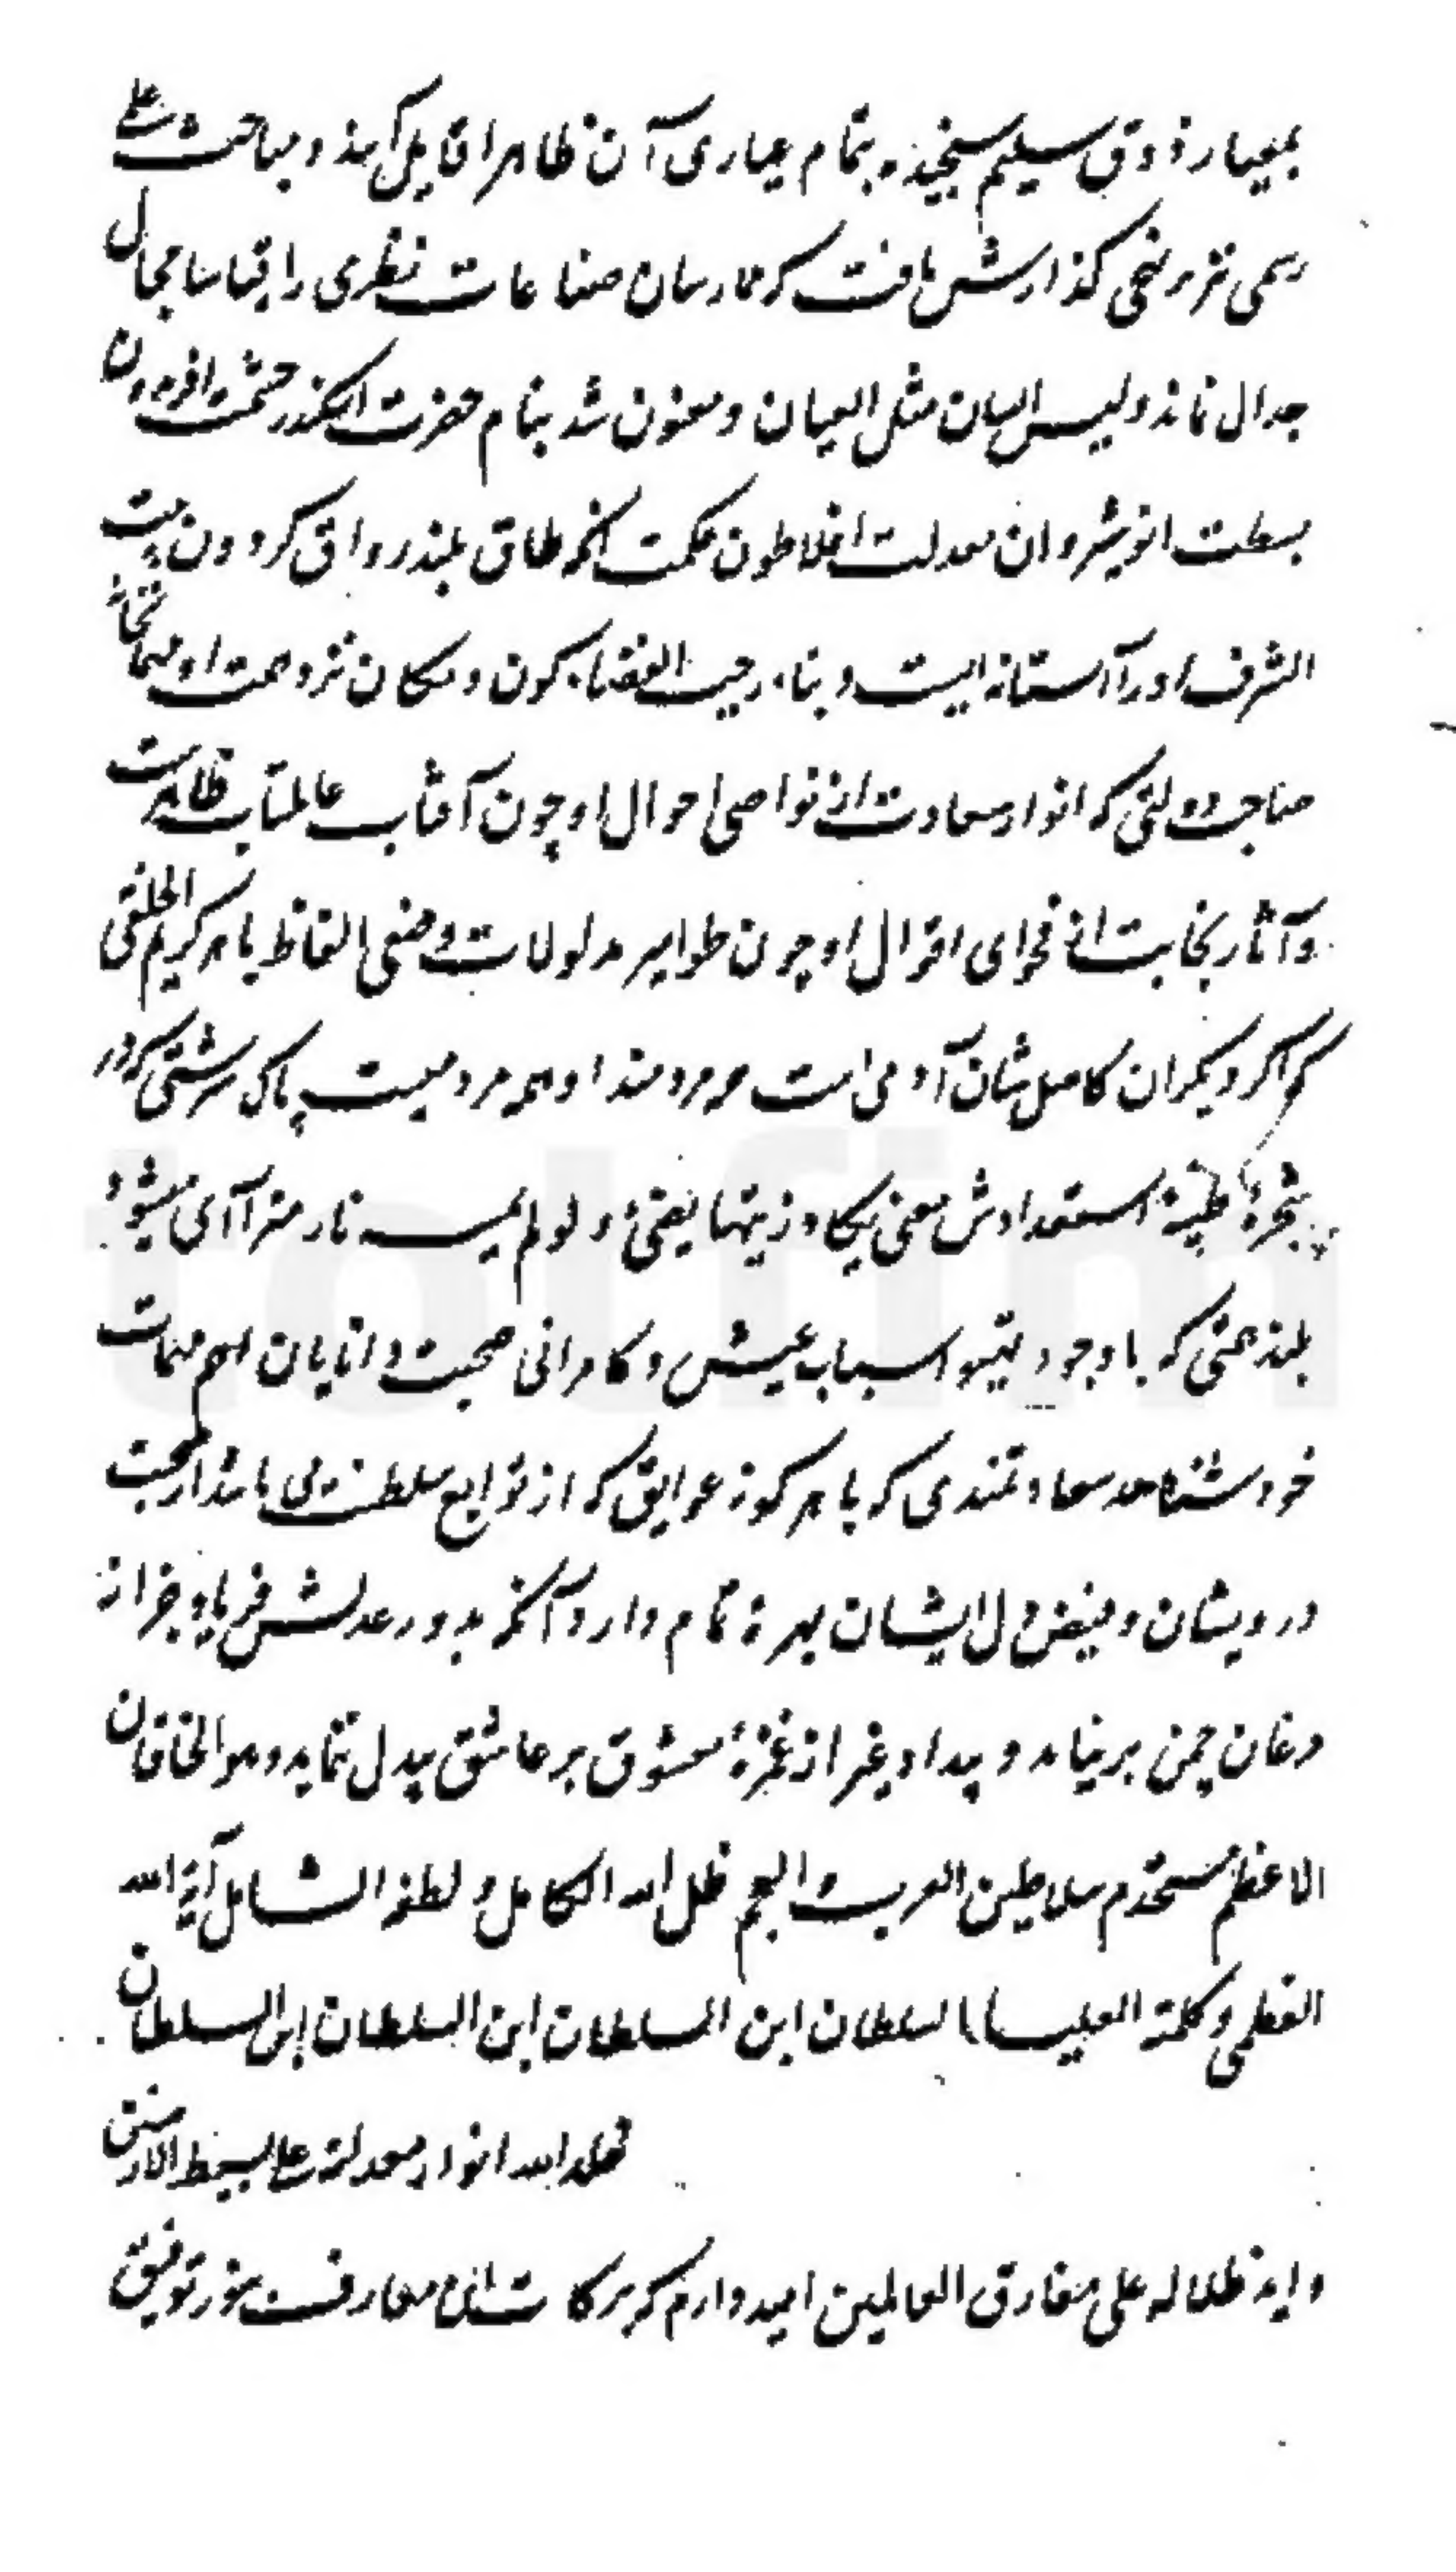 بمعیار ذوق سلیم سنجیده بتمام عیاری آن ظاهرا قایل آمذ و مباحث علی
رسمی نیز بر نهجی گذارش یافت که ممارسان صناعات نظری را یقینا مجال
جدال نماند و لیس البیان مثل العیان و معنون شد بنام حضرت اسکندر حشمت افریدون
بسطت انوشیروان معدلت افلاطون حکمت آنکه طاق بلند رواق گردون بیت
الشرف او را آستانه ایست و بناء رحیب الفضاء کون و مکان نزد همت او
صاحب دولتی که انوار سعادت از نواصی احوال او چون آفتاب عالمتاب ظاهرست
و آثار نجابت از فحوای اقوال او چون ظواهر مدلولات وضعی الفاظ باهر کریم الخلقی
که اگر دیگران کامل شان آدمی است مردمند او همه مردمیست پاک سرشتی که در
شجرهٔ طیبهٔ استعدادش معنی یکاد زیتها یضیٔ و لو لم تمسسه نار منزا آمی میشود
بلند همتی که با وجود تیسر اسباب عیش و کامرانی صحبت دانایان اهم مهمات
خود شناسد سعادتمندی که با هر گونه عوایق که از توابع سلطنت می باشد از محبت
درویشان و فیض دل ایشان بهرهٔ تمام دارد آنکه بدور عدلش فریاد جز از
مرغان چمن بر نیامد و بیداد غیر از غمزهٔ معشوق بر عاشق بیدل ننماید و هو الخاقان
الاعظم مستخدم سلاطین العرب و العجم ظل الله الکامل و لطفه الشامل آیة الله
العظمی و کلمته العلیا السلطان ابن السلطان ابن السلطان ابن السلطان
خلد الله انوار معدلته علی بسیط الارضین
و ابد ظلاله علی مفارق العالمین امیدوارم که برکات این معارف بنور توفیق